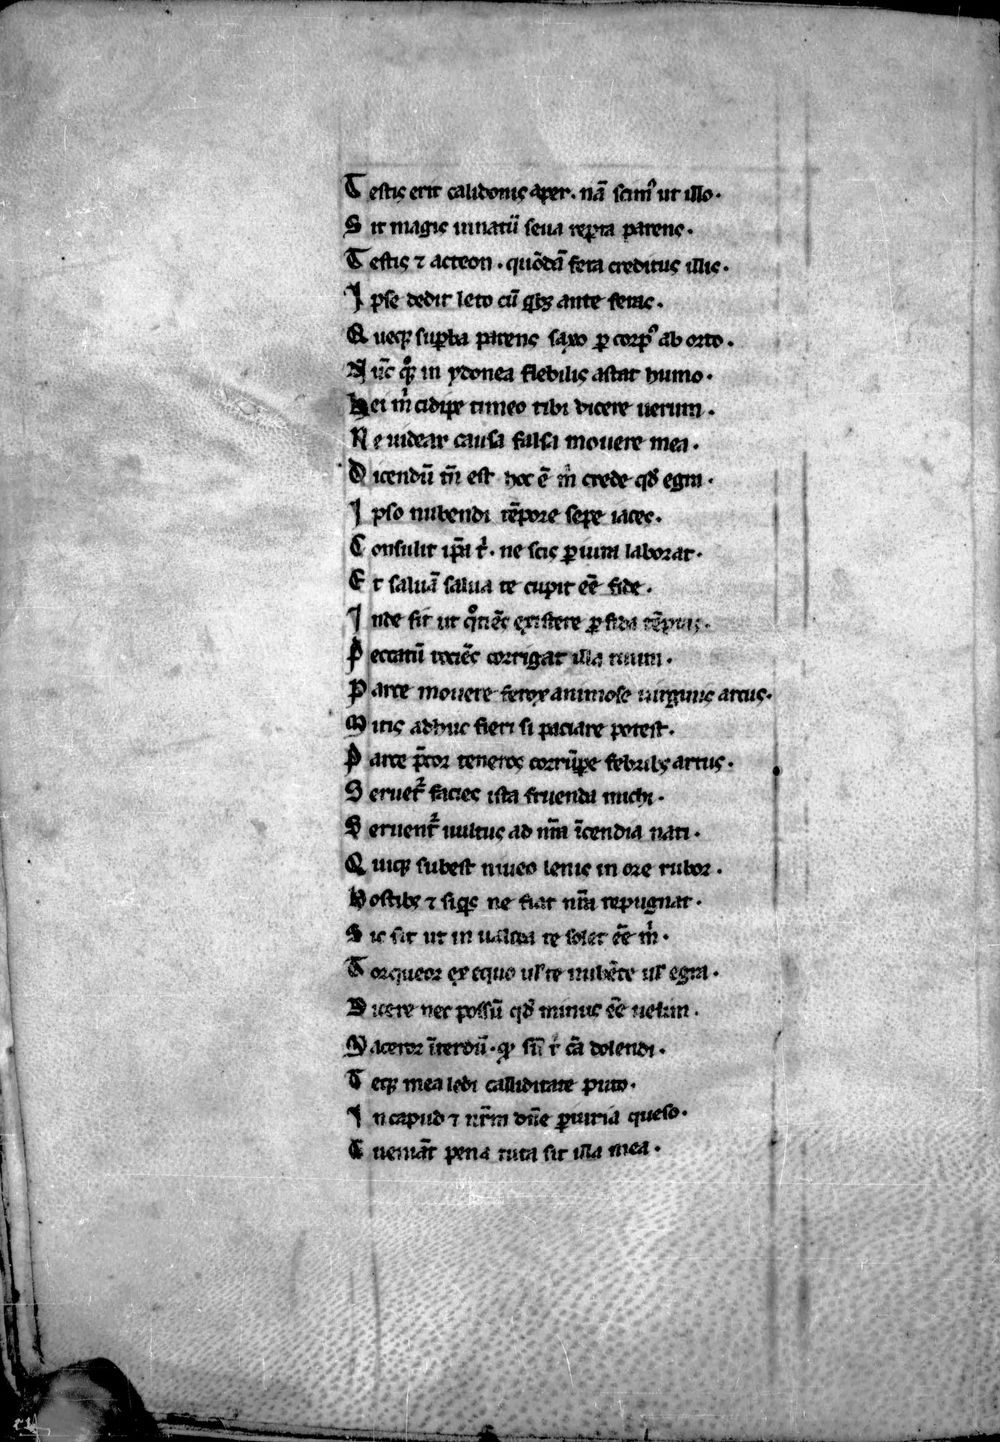 Testis erit calidonis aper. nã scim᷒ ut illo.
Sit magis inuatũ seua reꝑta parens.
Testis ⁊ acteon. quõdã fera creditus illis.
Ipse dedit leto cũ qͥbꝫ ante feras.
Quecꝫ suꝑba parens saxo ꝑ corp᷒ ab orto.
Nũc qͦꝫ in ydonea flebilis astat humo.
Hei mͥ cidipe timeo tibi dicere uerum.
Ne uidear causa falsa mouere mea.
Dicendũ tñ est hoc ē mͥ crede qđ egra.
Ipso nubendi tēpore sepe iaces.
Consulit ip̃a tͥ. ne scis ꝑiura laborat.
Et saluã salua te cupit eē fide.
Inde fit ut qͦciēs existere ꝑfida tēptas.
Peccatũ tociēs corrigat illa tuum.
Parce mouere feros animose uirginis arcus.
Mitis adhuc fieri si paciare potest.
Parce p̃cor teneros corrũpe febribꝫ artus.
Seruet᷑ facies ista fruenda michi.
Seruent᷑ uultus ad nr̃a ĩcendia nati.
Quicꝫ subest niueo lenis in ore rubor.
Hostibꝫ ⁊ siqͥs ne fiat nr̃a repugnat.
Sic sit ut in ualida te solet eē mͥ.
Torqueor ex equo ul̕ te nubēte ul̕ egra.
Dicere nec possũ qđ minus eē uelim.
Maceror ĩterdũ. qͩ sũ tͥ cã dolendi.
Tecꝫ mea ledi calliditate puto.
In capud ⁊ nr̃m dñe ꝑiuria queso.
Eueniãt pena tuta sit illa mea.